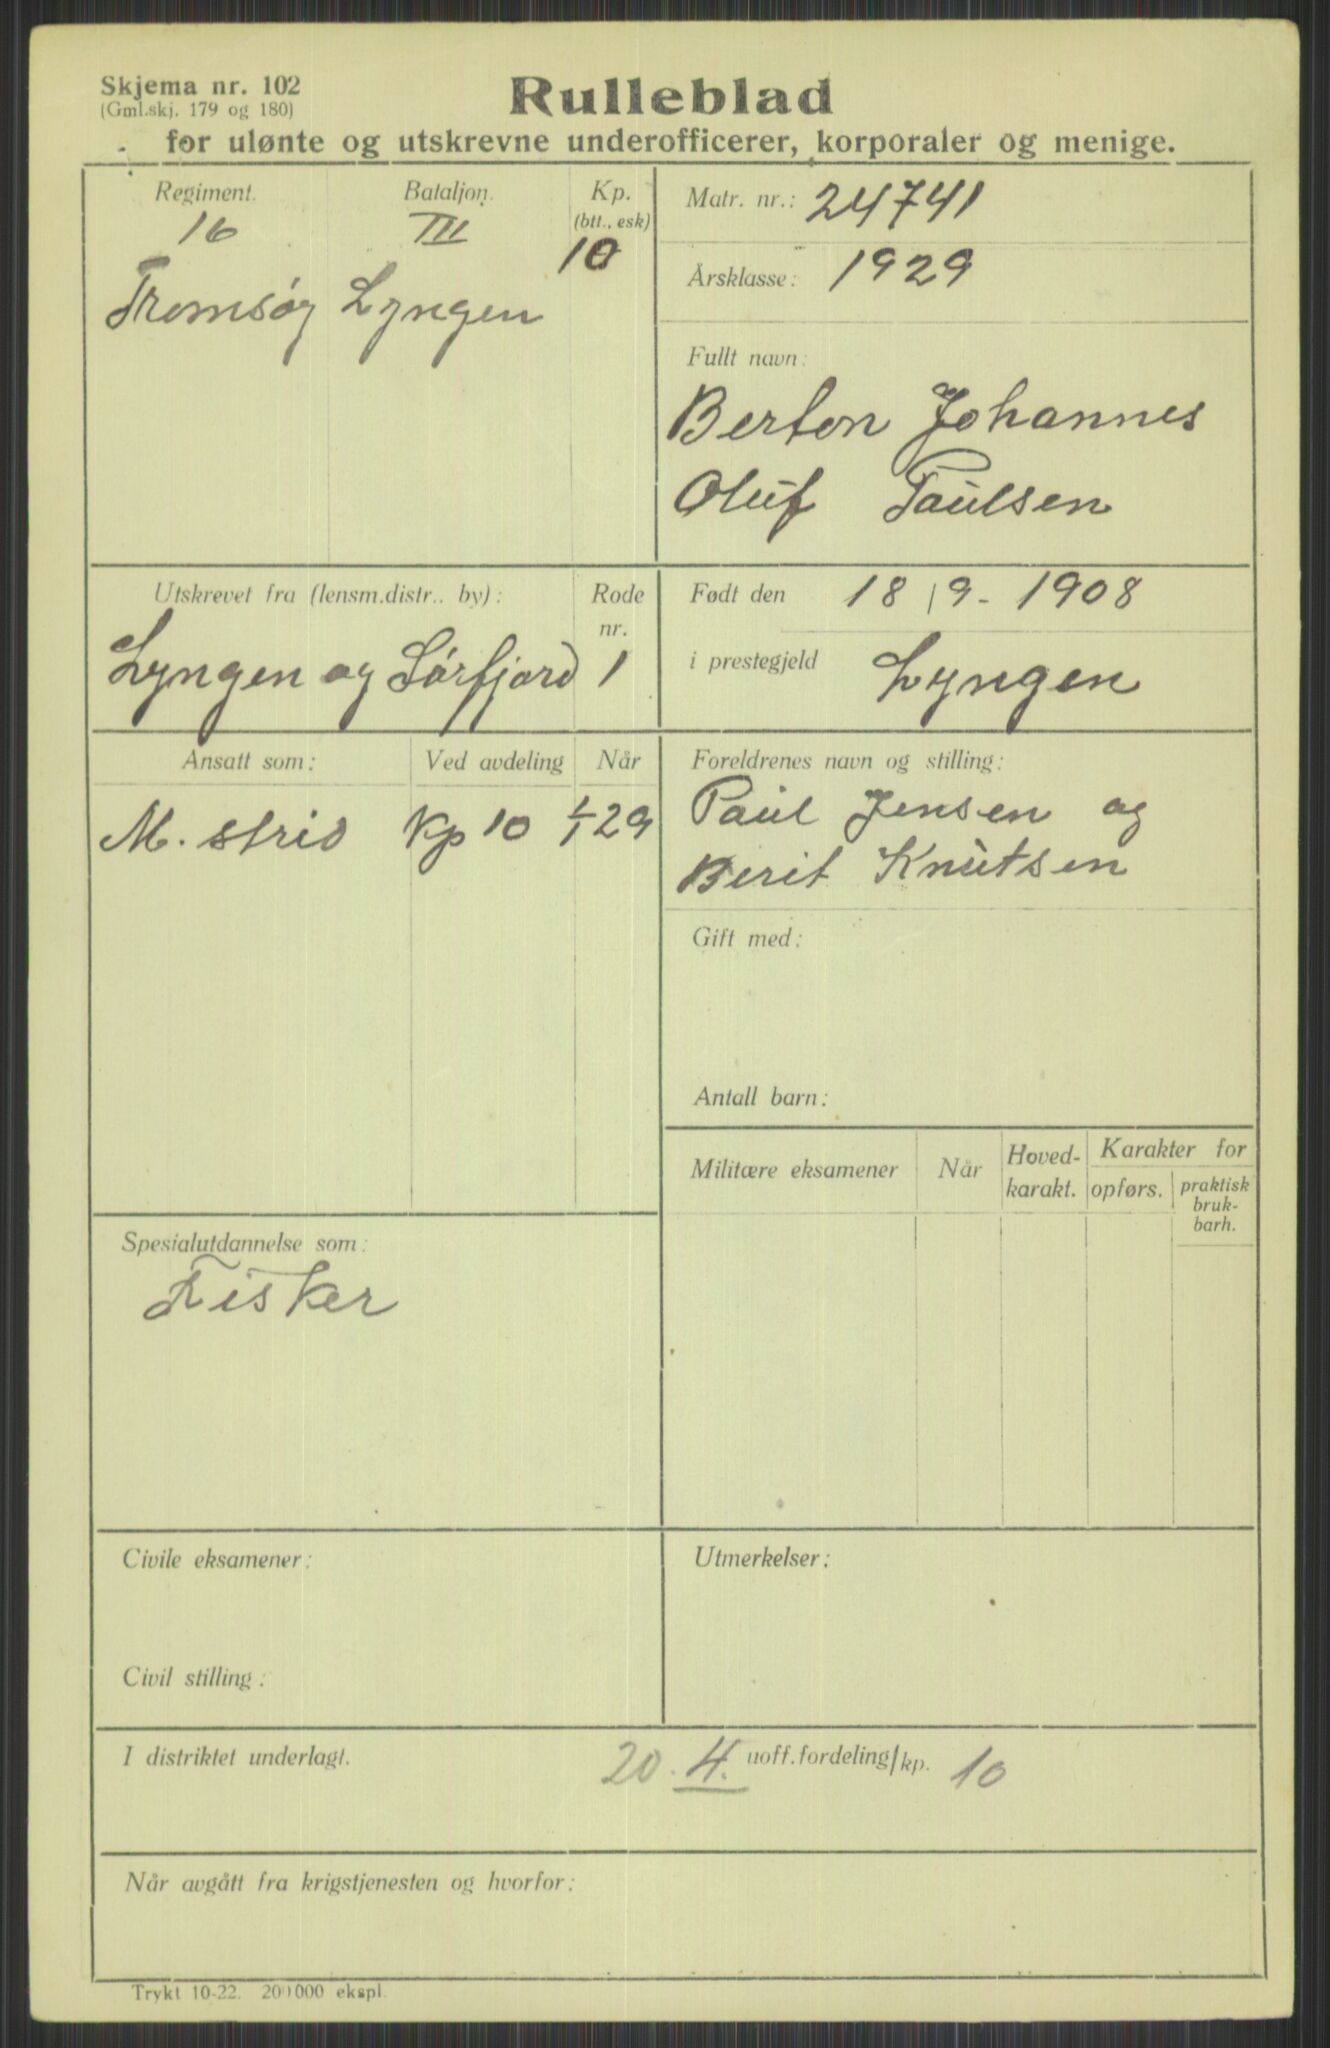 Skjema nr. 102
(Gml.skj. 179 og 180)
Rulleblad
for ulønte og utskrevne underofficerer, korporaler og menige.
Regiment.
16
Bataljon.
III
Kp.
(btt., esk)
10
Tromsøy Lyngen
Matr. nr.: 24741
Årsklasse: 1929
Fullt navn:
Berton Johannes
Oluf Paulsen
Utskrevet fra (lensm.distr.. by):
Lyngen og Sørfjord
Rode
nr.
1
Født den 18/9-1908
i prestegjeld Lyngen
Ansatt som:
Ved avdeling
Når
M. strid Kp 10 1/1 29
Foreldrenes navn og stilling:
Paul Jensen og
Berit Knutsen
Gift med:
Antall barn:
Militære eksamener
Når
Hoved-
karakt.
Karakter for
opførs.
praktisk
bruk-
barh.
Spesialutdannelse som:
Fisker
Civile eksamener:
Civil stilling:
Utmerkelser:
I distriktet underlagt. 20. 4. uoff.fordeling/kp. 10
Når avgått fra krigstjenesten og hvorfor:
Trykt 10-22. 200000 ekspl.